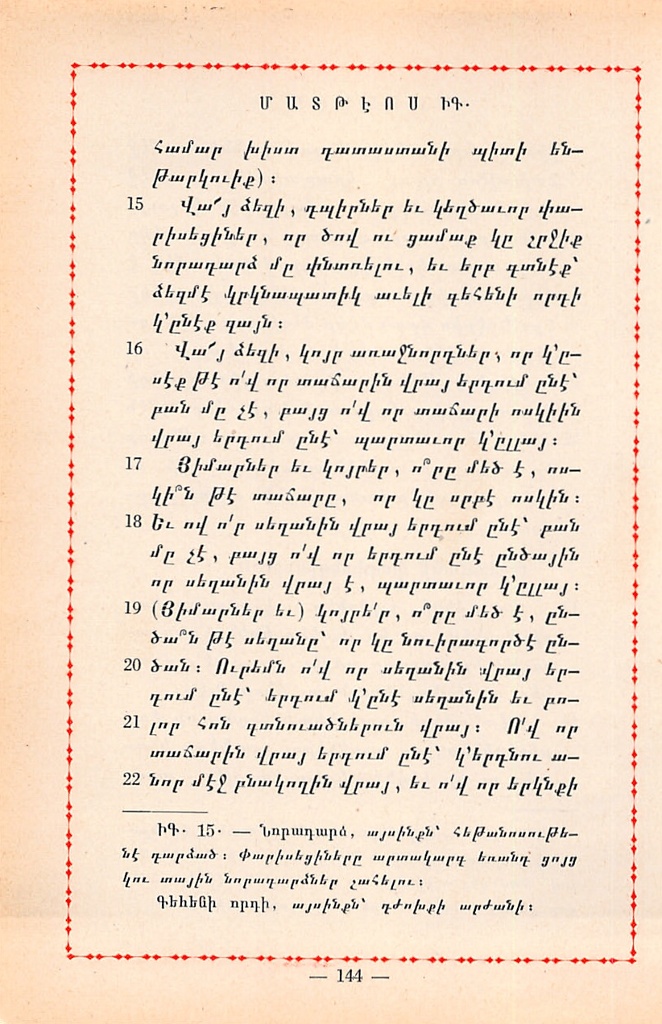 ՄԱՏԹԷՈՍ ԻԳ.
համար խիստ դատաստանի պիտի են—
թարկուիք) :
15 Վա՜յ ձեզի, դպիրներ եւ կեղծաւոր փա—
րիսեցիներ, որ ծով ու ցամաք կը շրջիք
նորադարձ մը փնտռելու, եւ երբ գտնէք՝
ձեզմէ կրկնապատիկ աւելի գեհենի որդի
կ՚ընէք զայն :
16 Վա՜յ ձեզի, կոյր առաջնորդներ, որ կ՚ը—
սէք թէ ո՛վ որ տաճարին վրայ երդում ընէ՝
բան մը չէ, բայց ո՛վ որ տաճարի ոսկիին
վրայ երդում ընէ՝ պարտաւոր կ՚ըլլայ :
17 Յիմարներ եւ կոյրեր, ո՞րը մեծ է, ոս—
կի՞ն թէ տաճարը, որ կը սրբէ ոսկին :
18 Եւ ով ո՛ր սեղանին վրայ երդում ընէ՝ բան
մը չէ, բայց ո՛վ որ երդում ընէ ընծային
որ սեղանին վրայ է, պարտաւոր կ՚ըլլայ :
19 (Յիմարներ եւ) կոյրե՛ր, ո՞րը մեծ է, ըն—
ծա՞ն թէ սեղանը՝ որ կը նուիրագործէ ըն—
20 ծան : Ուրեմն ո՛վ որ սեղանին վրայ եր—
դում ընէ՝ երդում կ՚ընէ սեղանին եւ բո—
21 լոր հոն գտնուածներուն վրայ : Ո՛վ որ
տաճարին վրայ երդում ընէ՝ կ՚երդնու ա—
22 նոր մէջ բնակողին վրայ, եւ ո՛վ որ երկնքի
ԻԳ. 15. — Նորադարձ, այսինքն՝ հեթանոսութե—
նէ դարձած : Փարիսեցիները արտակարգ եռանդ ցոյց
կու տային նորադարձներ շահելու :
Գեհենի որդի, այսինքն՝ դժոխքի արժանի :
— 144 —